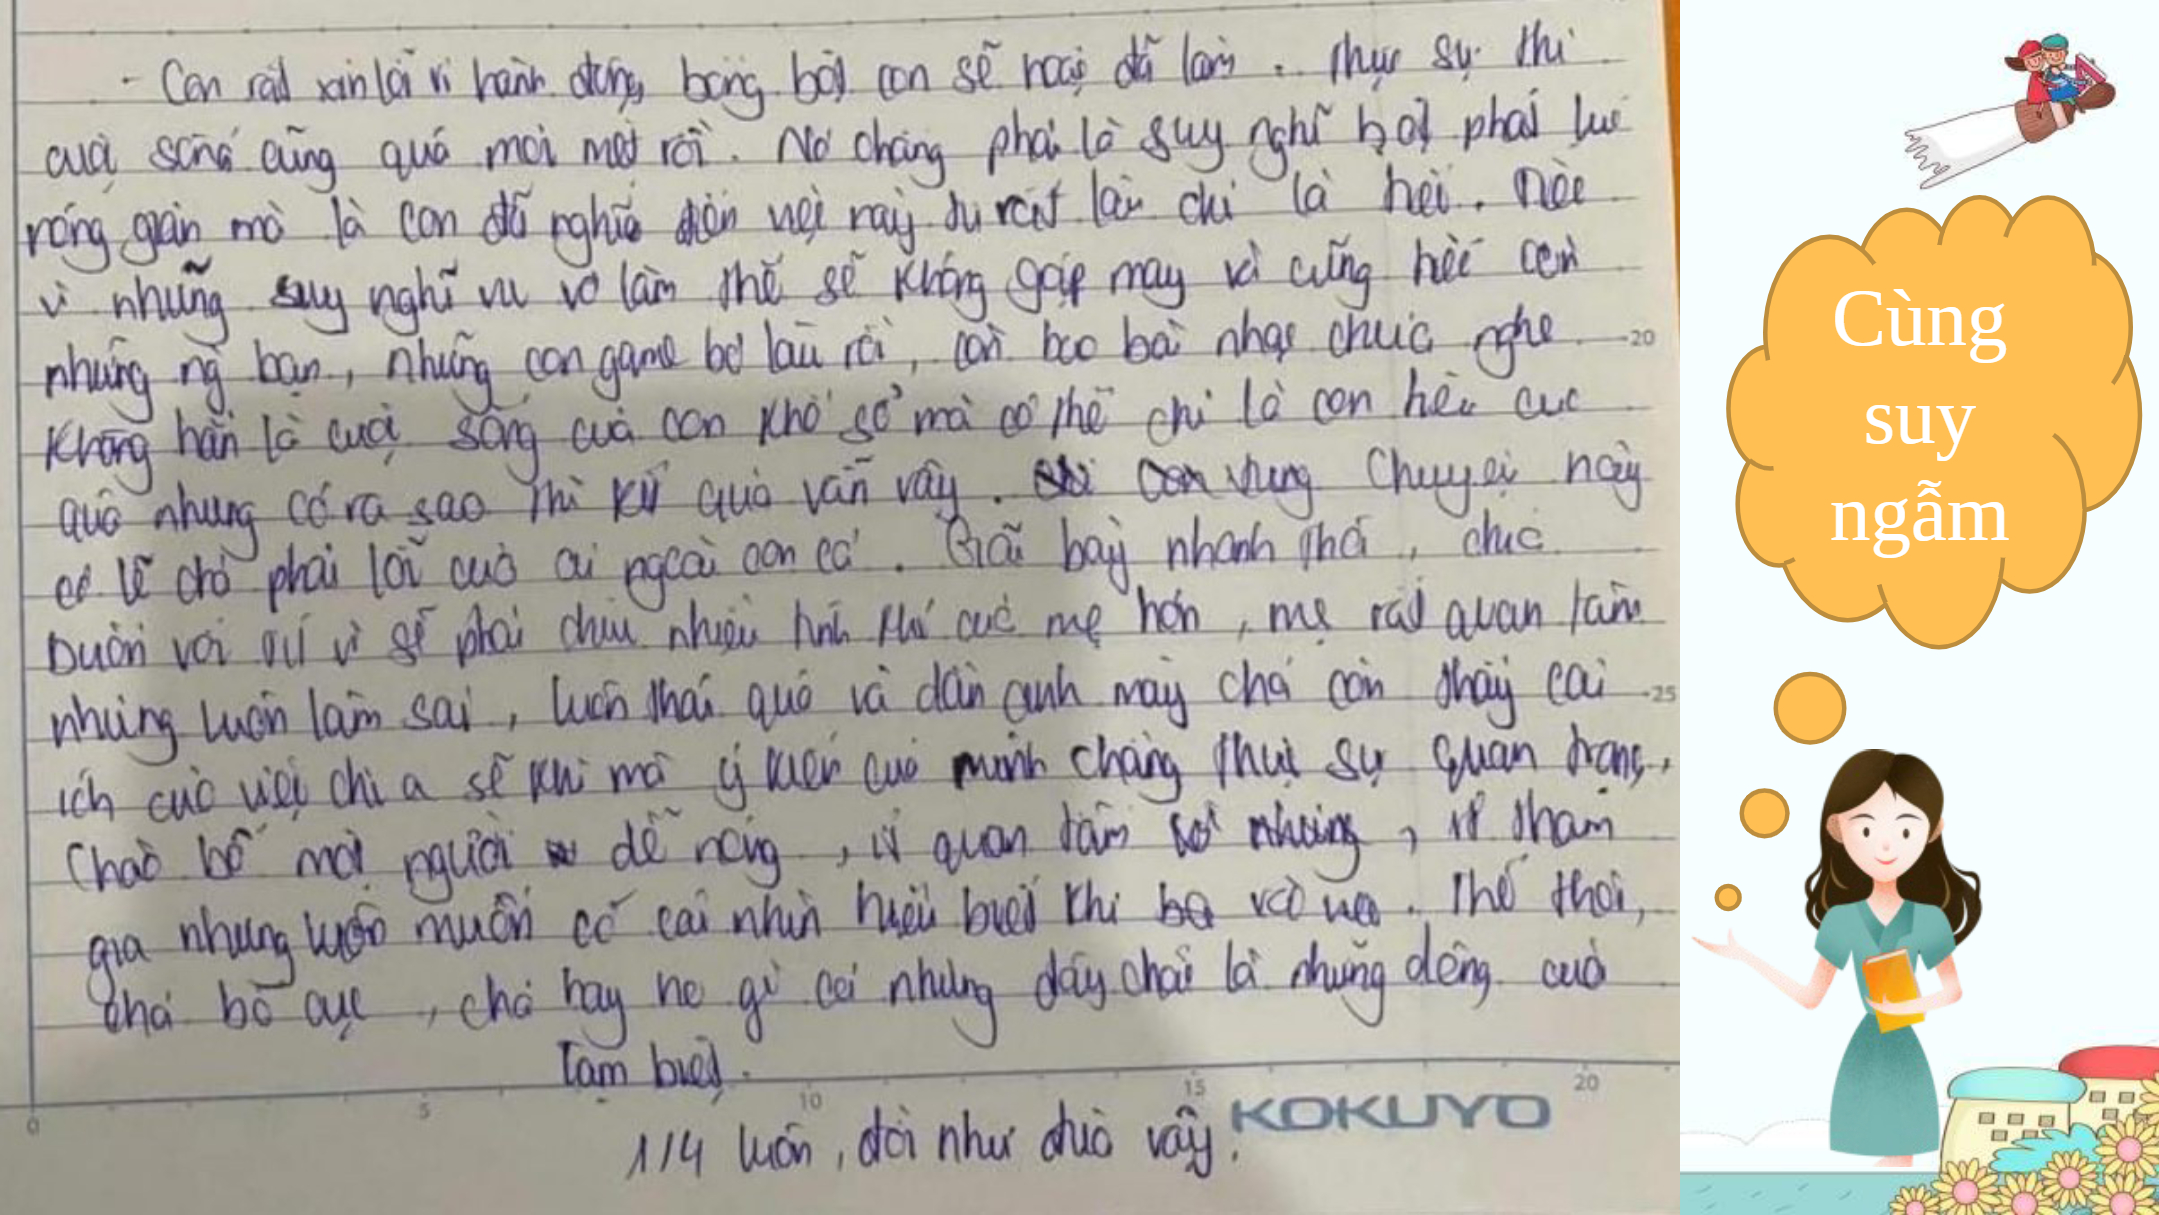 - Con rất xin lỗi vì hành động bồng bột con sẽ hoặc đã làm. Thực sự thì
cuộc sống cũng quá mỏi mệt rồi. Nó chẳng phải là suy nghĩ bột phát lúc
nóng giận mà là con đã nghĩ đến việc này từ rất lâu chỉ là hơi.
vì những suy nghĩ vu vơ làm thế sẽ không gặp may và cũng hơi
những ng bạn, những con game bỏ lâu rồi, còn bao bài nhạc chưa nghe
Không hẳn là cuộc sống của con khổ sở mà có thể chỉ là con hèn
quá nhưng có ra sao thì kết quả vẫn vậy. chuyện này
có lẽ chả phải lỗi của ai ngoài con cả. nhanh thôi, chắc
buồn với vì sẽ phải chịu nhiều tính khí của mẹ hơn, mẹ rất quan tâm
nhưng luôn làm sai, luôn thái quá và dần anh mày chả còn thấy cái
ích của việc chia sẽ khi mà ý kiến của mình chẳng thực sự quan trọng,
Chào bố một người dễ nóng, ít quan tâm nhưng, ít tham
gia nhưng luôn muốn có cái nhìn hiểu biết khi. Thế thôi,
chả bố cục, chả hay ho gì cả nhưng đấy chắc là những dòng của
Tạm biệt.
1/4 luôn, đời như đùa vậy.
KOKUYO
0 5 10 15 20
20
25
Cùng
suy
ngẫm